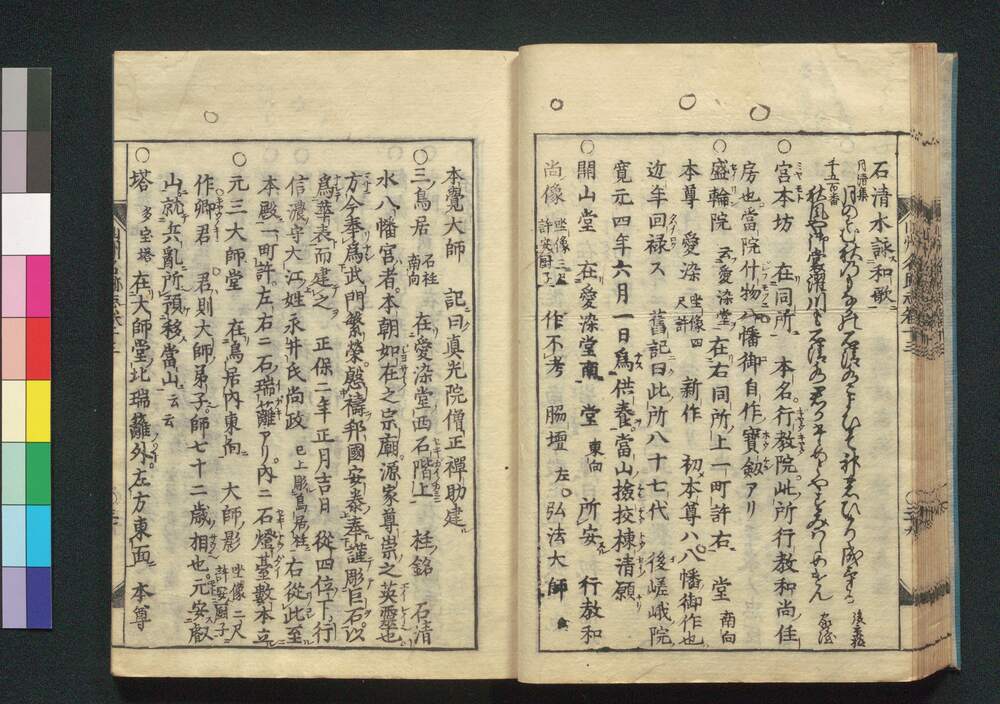 石清水詠和歌
月清集
千五百番
後京極
家隆
○宮本坊 在同所 本名行教院此所行教和尚住
房也當院什物八幡御自作寶劔アリ
○盛輪院 云愛染堂 在右同所上一町許右 堂 南向
本尊 愛染 坐像四尺許 新作 初本尊ハ八幡御作也
近年回禄ス 舊記曰此所八十七代 後嵯峨院
寛元四年六月一日爲供養當山撿挍棟清願
○開山堂 在愛染堂南 堂 東向 所安 行教和
尚像 坐像三尺許安厨子 作不考 脇壇 左 弘法大師
本覺大師 記曰真光院僧正禪助建
○三鳥居 石柱南向 在愛染堂西石階上 柱銘 石清
水八幡宮者本朝如在之宗廟源家尊崇之英靈也
方今奉爲武門繁榮慇禱邦國安泰奉謹彫巨石以
爲華表而建之 正保二年正月吉日 從四位下行
信濃守大江姓永井氏尚政 已上彫鳥居柱 右從此至
本殿一町許左右二石瑞籬アリ内二石燈臺數本立
○元三大師堂 在鳥居内東向 大師影 坐像二尺許安厨子
作卿君 君則大師弟子師七十二歳相也元安叡
山就兵亂所預移當山云云
○塔 多宝塔 在大師堂北瑞籬外左方東面 本尊